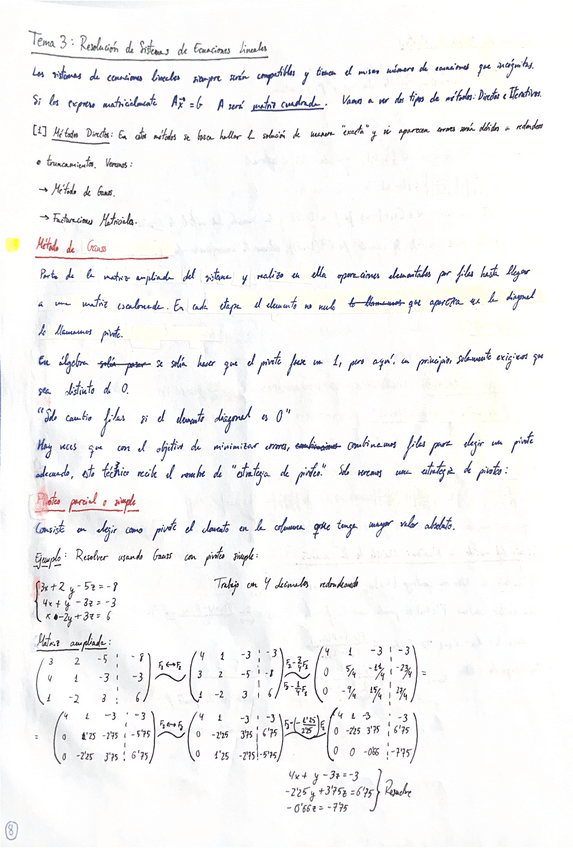 Tema 3: Resolución de Sistemas de Ecuaciones Lineales
Los sistemas de ecuaciones lineales siempre serán compatibles y tienen el mismo número de ecuaciones que incógnitas.
Si los expreso matricialmente Ax̄ = b A será matriz cuadrada. Vamos a ver dos tipos de métodos: Directos e Iterativos.
[1] Métodos Directos: En estos métodos se busca hallar la solución de manera "exacta" y si aparecen errores serán debidos a redondeos
o truncamientos. Veremos:
→ Método de Gauss.
→ Factorizaciones Matriciales.
Método de Gauss
Parto de la matriz ampliada del sistema y realizo en ella operaciones elementales por filas hasta llegar
a una matriz escalonada. En cada etapa el elemento no nulo lo llamamos que aparezca en la diagonal
le llamamos pivote.
En álgebra solía pasar se solía hacer que el pivote fuese un 1, pero aquí, en principio, solamente exigimos que
sea distinto de 0.
"Solo cambio filas si el elemento diagonal es 0"
Hay veces que con el objetivo de minimizar errores, combinamos filas para elegir un pivote
adecuado, esta técnica recibe el nombre de "estrategia de pivoteo". Solo veremos una estrategia de pivoteo:
Pivoteo parcial o simple
Consiste en elegir como pivote el elemento en la columna que tenga mayor valor absoluto.
Ejemplo: Resolver usando Gauss con pivoteo simple:
3x + 2y - 5z = -8 Trabajo con 4 decimales redondeando
4x + y - 3z = -3
x - 2y + 3z = 6
Matriz ampliada:
3 2 -5 -8 F₁↔F₂ 4 1 -3 -3 F₂-3/4F₁ 4 1 -3 -3
4 1 -3 -3 3 2 -5 -8 F₃-1/4F₁ 0 5/4 -11/4 -23/4 =
1 -2 3 6 1 -2 3 6 0 -9/4 15/4 27/4
4 1 -3 -3 F₂↔F₃ 4 1 -3 -3 4 1 -3 -3
= 0 1'25 -2'75 -5'75 0 -2'25 3'75 6'75 0 -2'25 3'75 6'75
0 -2'25 3'75 6'75 0 1'25 -2'75 -5'75 0 0 -0'66 -7'75
4x + y - 3z = -3
-2'25y + 3'75z = 6'75 Resuelve
-0'66z = -7'75
8